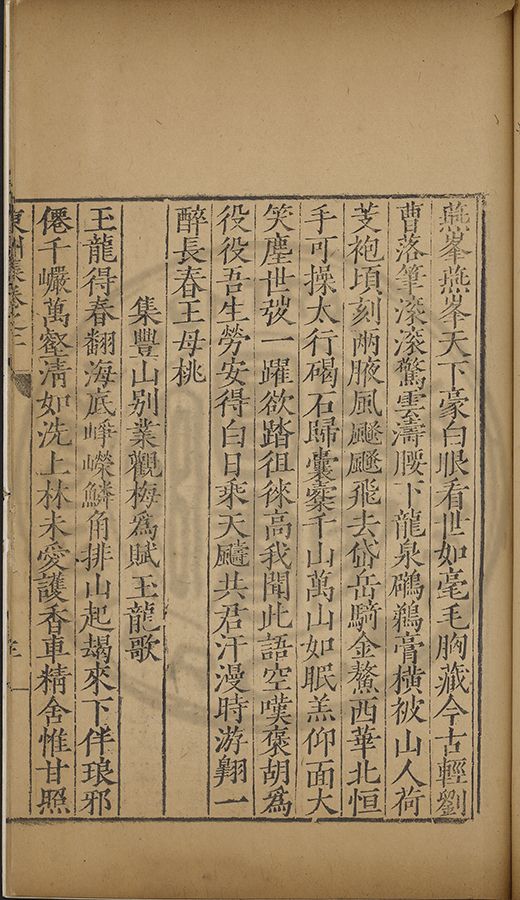 燕峯燕峯天下豪白眼看世如毫毛胸藏今古輕劉
曹落筆滚滚驚雲濤腰下龍泉鸊鵜膏横被山人荷
芰袍頃刻兩腋風飈飈飛去岱岳騎金鰲西華北恒
手可操太行碣石歸囊槖千山萬山如眠羔仰面大
笑塵世發一躍欲踏徂徠高我聞此語空嘆褒胡爲
役役吾生勞安得白日乘天飈共君汗漫時游翺一
醉長春王母桃
集豐山别業觀梅爲賦玉龍歌
玉龍得春翻海底崢嶸鱗角排山起朅來下伴琅邪
僊千巖萬壑淸如洗上林未愛護香車精舍惟甘照
東洲集卷之二